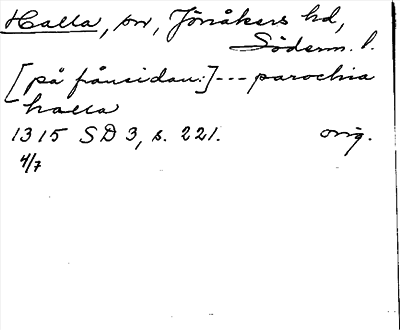 Halla, sn, Jönåkers hd,
Söderm. l.
[på frånsidan:] --- parochia
halla
1315 SD 3, s. 221. orig.
4/7